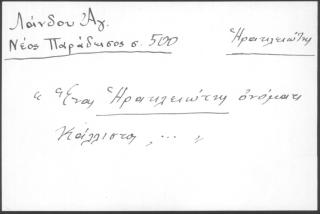 Λάνδου Ἀγ.
Νέος Παράδεισος σ. 500
Ἡρακλειώτης
« Ἕνας Ἡρακλειώτης ὀνόματι
Κάλλιστος, ... »